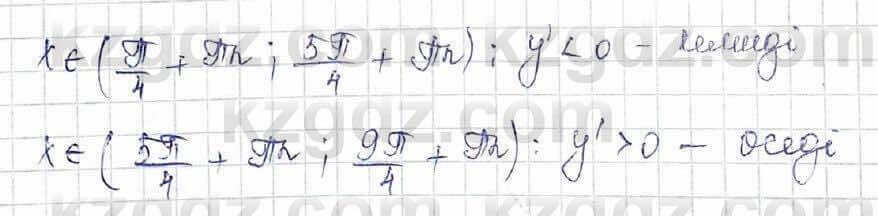 x ∈ (π/4 + πn; 5π/4 + πn); y' < 0 - кемиді
x ∈ (5π/4 + πn; 9π/4 + πn): y' > 0 - өседі
kzgdz.com